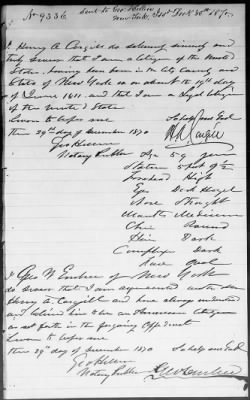 No 9336
Sent to Geo Hillen
New York, Decr 30th 1870
I Henry A. Cargill do solemnly sincerely and
truly swear that I am a citizen of the United
States, having been born in the City County and
State of New York on or about the 19th day
of June 1811 and that I am a Legal Citizen
of the United States
Sworn to before me So help me God
this 29th day of December 1870 H A Cargill
Geo Hillen
Notary Public Age 59 years
Stature 5 feet
Forehead High
Eyes Dark Hazel
Nose Straight
Mouth Medium
Chin Round
Hair Dark
Complexion Dark
Face Oval
I Geo W Embree of New York
do swear that I am acquainted with
Henry A. Cargill and have always
and believe him to be an American Citizen
as set forth in the foregoing Affidavit
Sworn to before me
this 29th day of December 1870 So help me God
Geo Hillen
Notary Public Geo W Embree